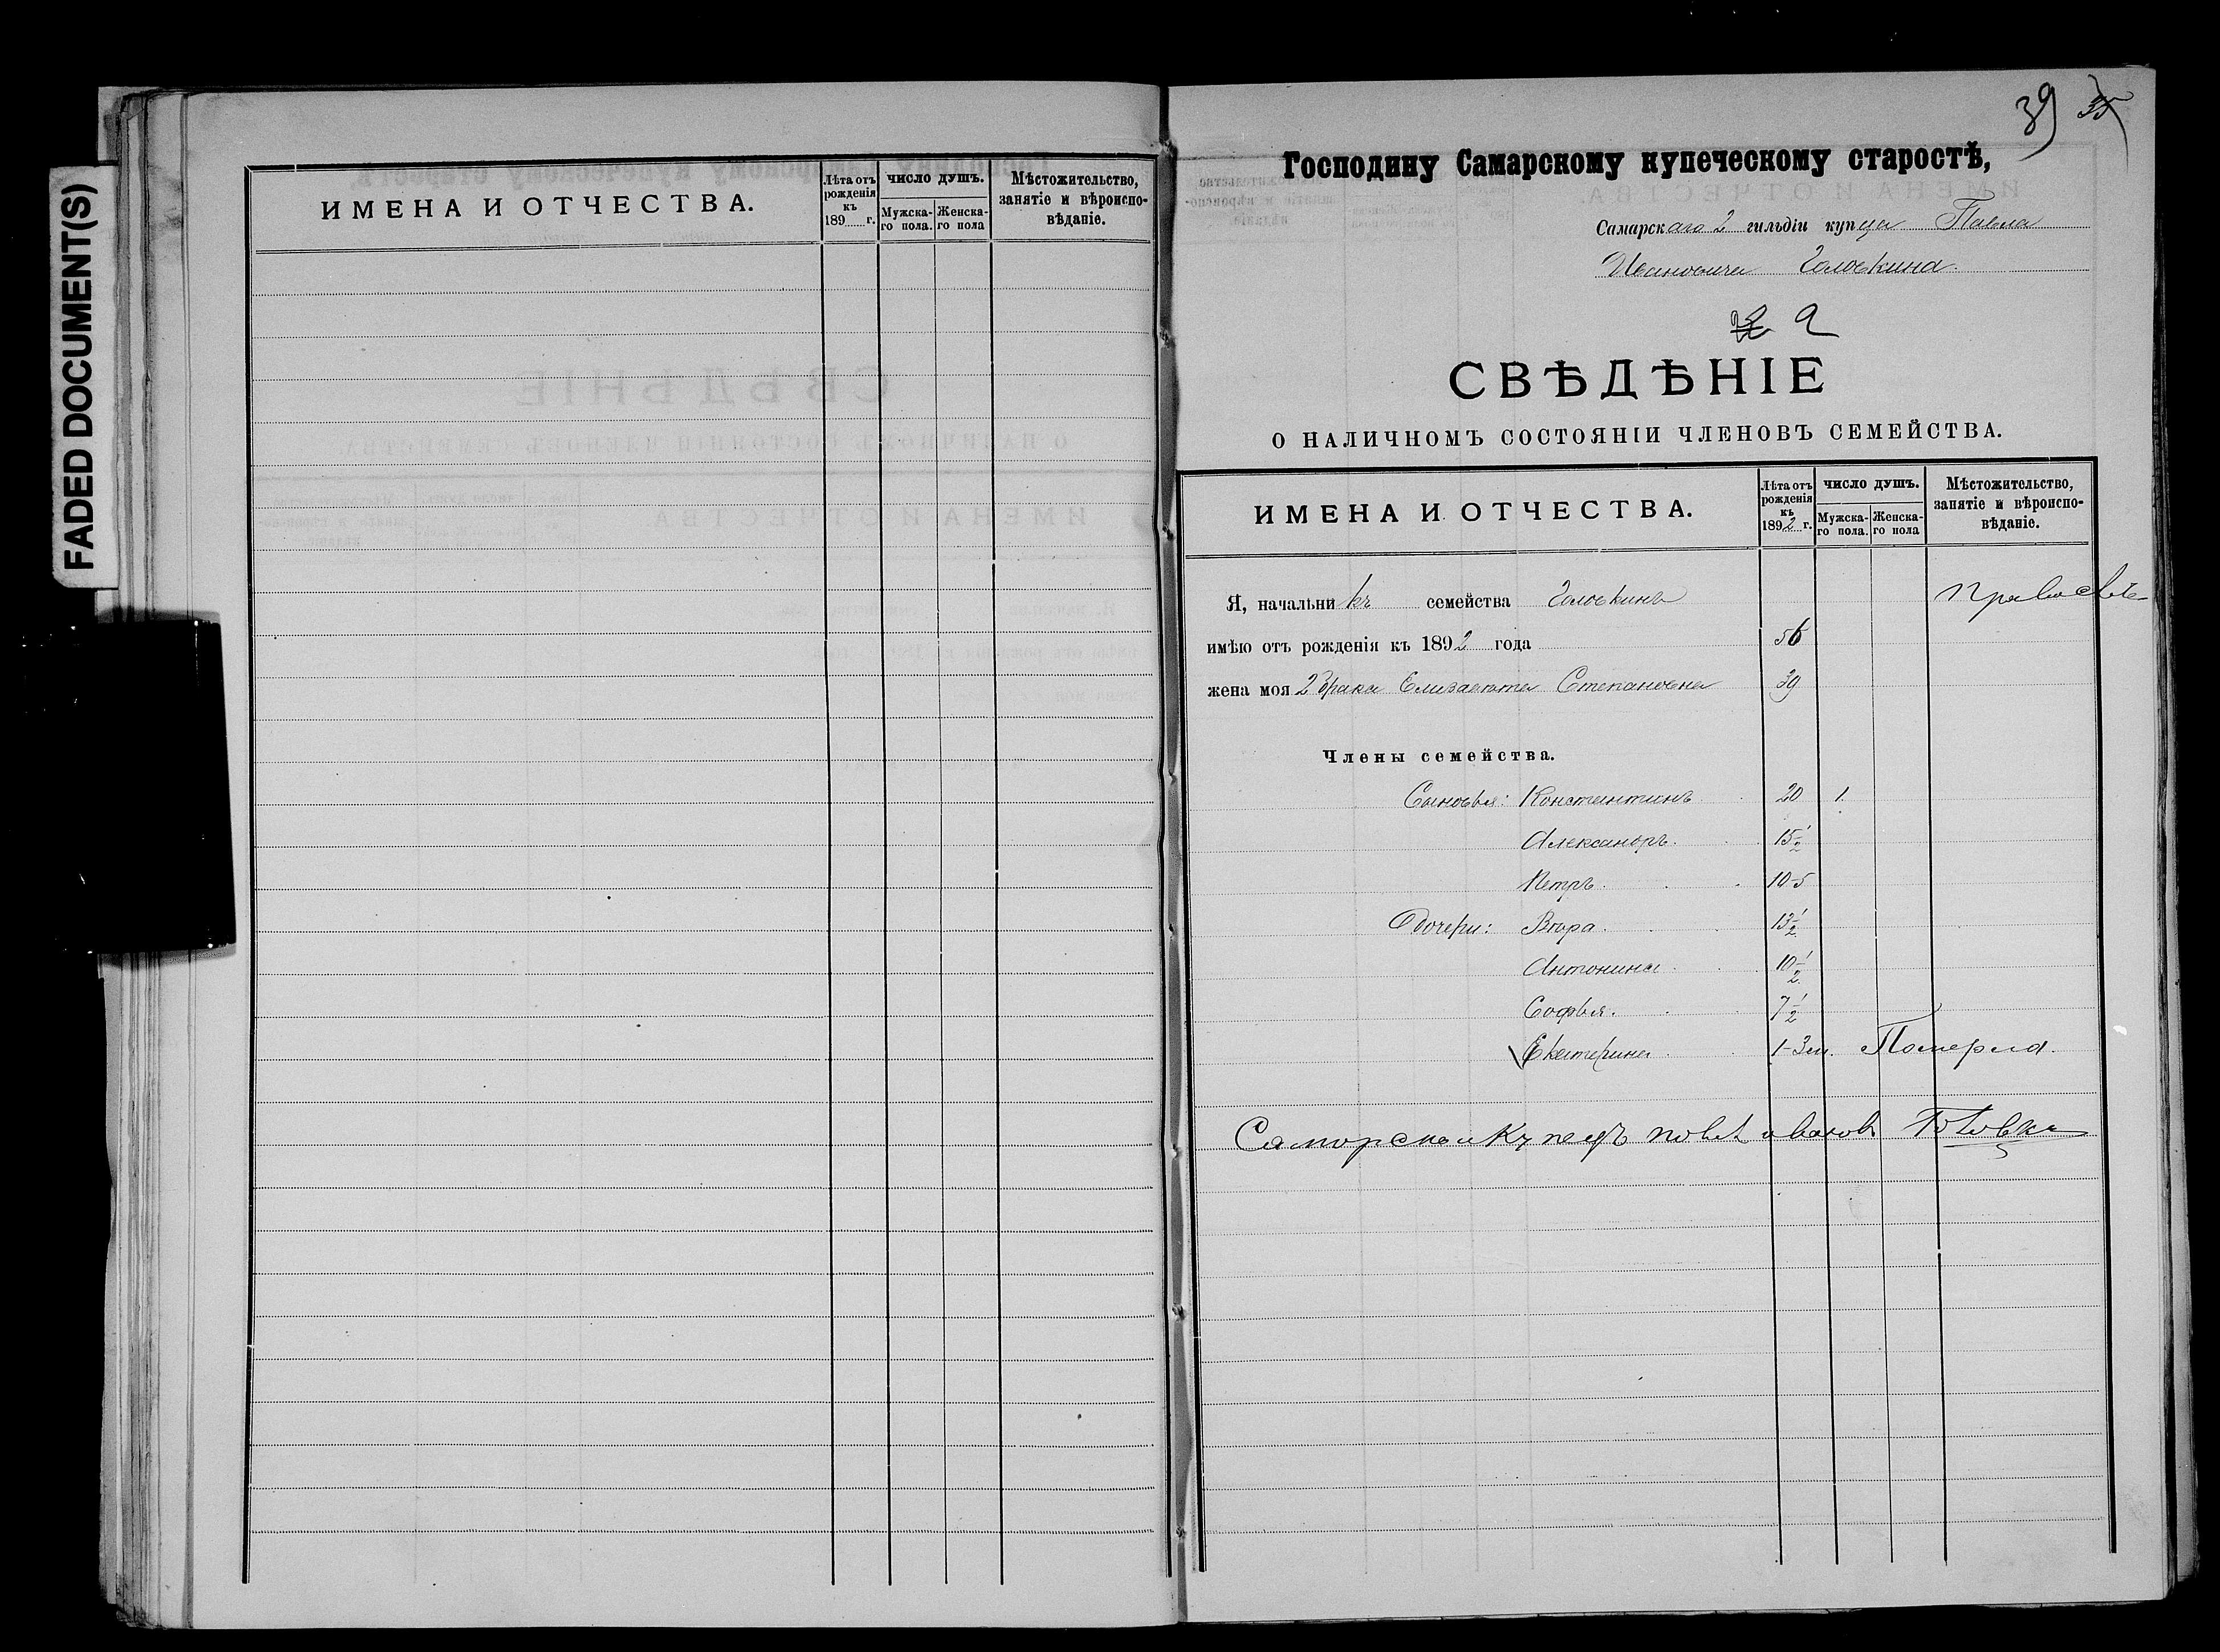 FADED DOCUMENT(S)
ИМЕНА И ОТЧЕСТВА.
Лѣта отъ рожденія къ 189 г.
ЧИСЛО ДУШЪ.
Мужска-го пола.
Женска-го пола
Мѣстожительство, занятіе и вѣроиспо-вѣданіе.
39 35
Господину Самарскому купеческому старостѣ,
Самарскаго 2 гильдіи купца Павла
Ивановича Головкина.
2
СВѢДѢНІЕ
О НАЛИЧНОМЪ СОСТОЯНІИ ЧЛЕНОВЪ СЕМЕЙСТВА.
ИМЕНА И ОТЧЕСТВА.
Лѣта отъ рожденія къ 1892 г.
ЧИСЛО ДУШЪ.
Мужска-го пола.
Женска-го пола
Мѣстожительство, занятіе и вѣроиспо-вѣданіе.
Я, начальникъ семейства Головкинъ
имѣю отъ рожденія къ 1892 года 56
жена моя 2 брака Елизавета Степановна 39
Члены семейства.
Сыновья: Константинъ. 20 1.
Александръ. 15 1/2
Петръ. 10-5
Дочери: Вѣра. 13 1/2
Антонина. 10 1/2
Софья. 7 1/2
Екатерина. 1-3 м. Померла.
Самарскои Купецъ